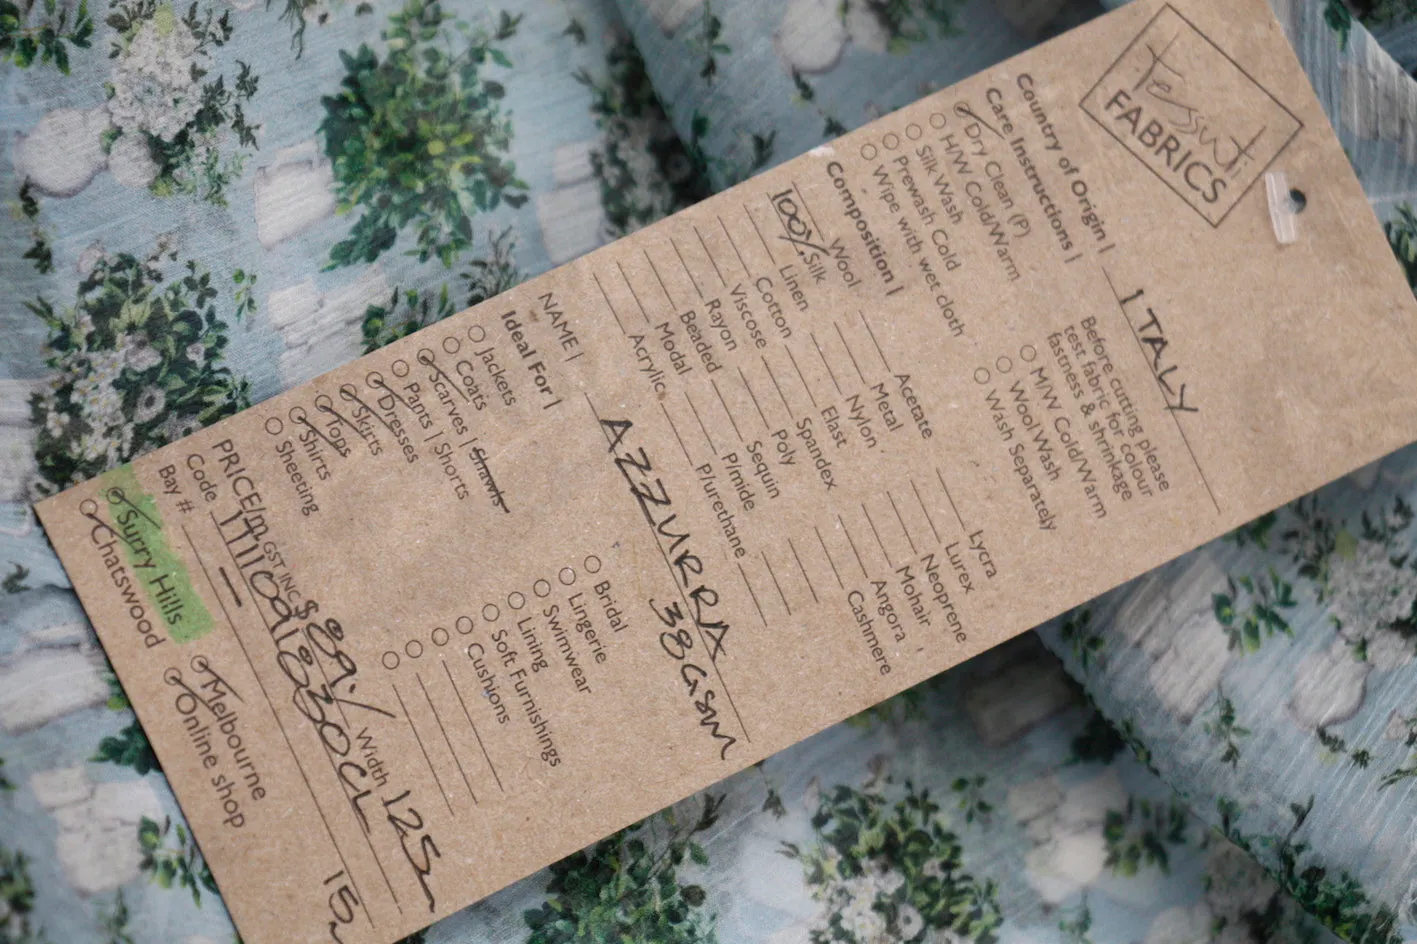 Tessuti
FABRICS
Country of Origin | ITALY
Care Instructions |
Dry Clean (P)
H/W Cold/Warm
Silk Wash
Prewash Cold
Wipe with wet cloth
Before cutting please
test fabric for colour
fastness & shrinkage
M/W Cold/Warm
Wool Wash
Wash Separately
Composition |
Wool
100% Silk
Linen
Cotton
Viscose
Rayon
Beaded
Modal
Acrylic
Acetate
Metal
Nylon
Elast
Spandex
Poly
Sequin
P/mide
P/urethane
Lycra
Lurex
Neoprene
Mohair
Angora
Cashmere
NAME | AZZURRA
38GSM
Ideal For |
Jackets
Coats
Scarves | Shawls
Pants | Shorts
Dresses
Skirts
Tops
Shirts
Sheeting
Bridal
Lingerie
Swimwear
Lining
Soft Furnishings
Cushions
PRICE/m GST INC $ 89./ Width 125
Code
Bay # –
15
Surry Hills
Chatswood
Melbourne
Online shop